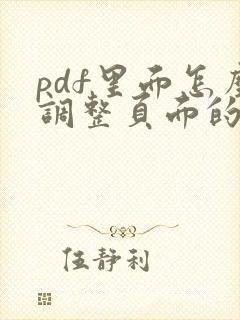 pdf里面怎麼
調整頁面的
伍靜利